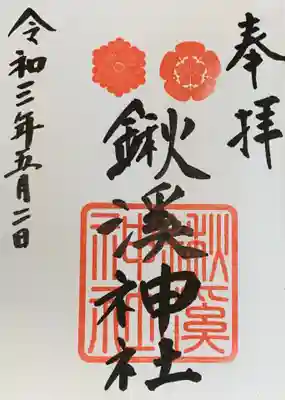 奉拝
鍬渓神社
鍬渓神社
令和三年五月二日